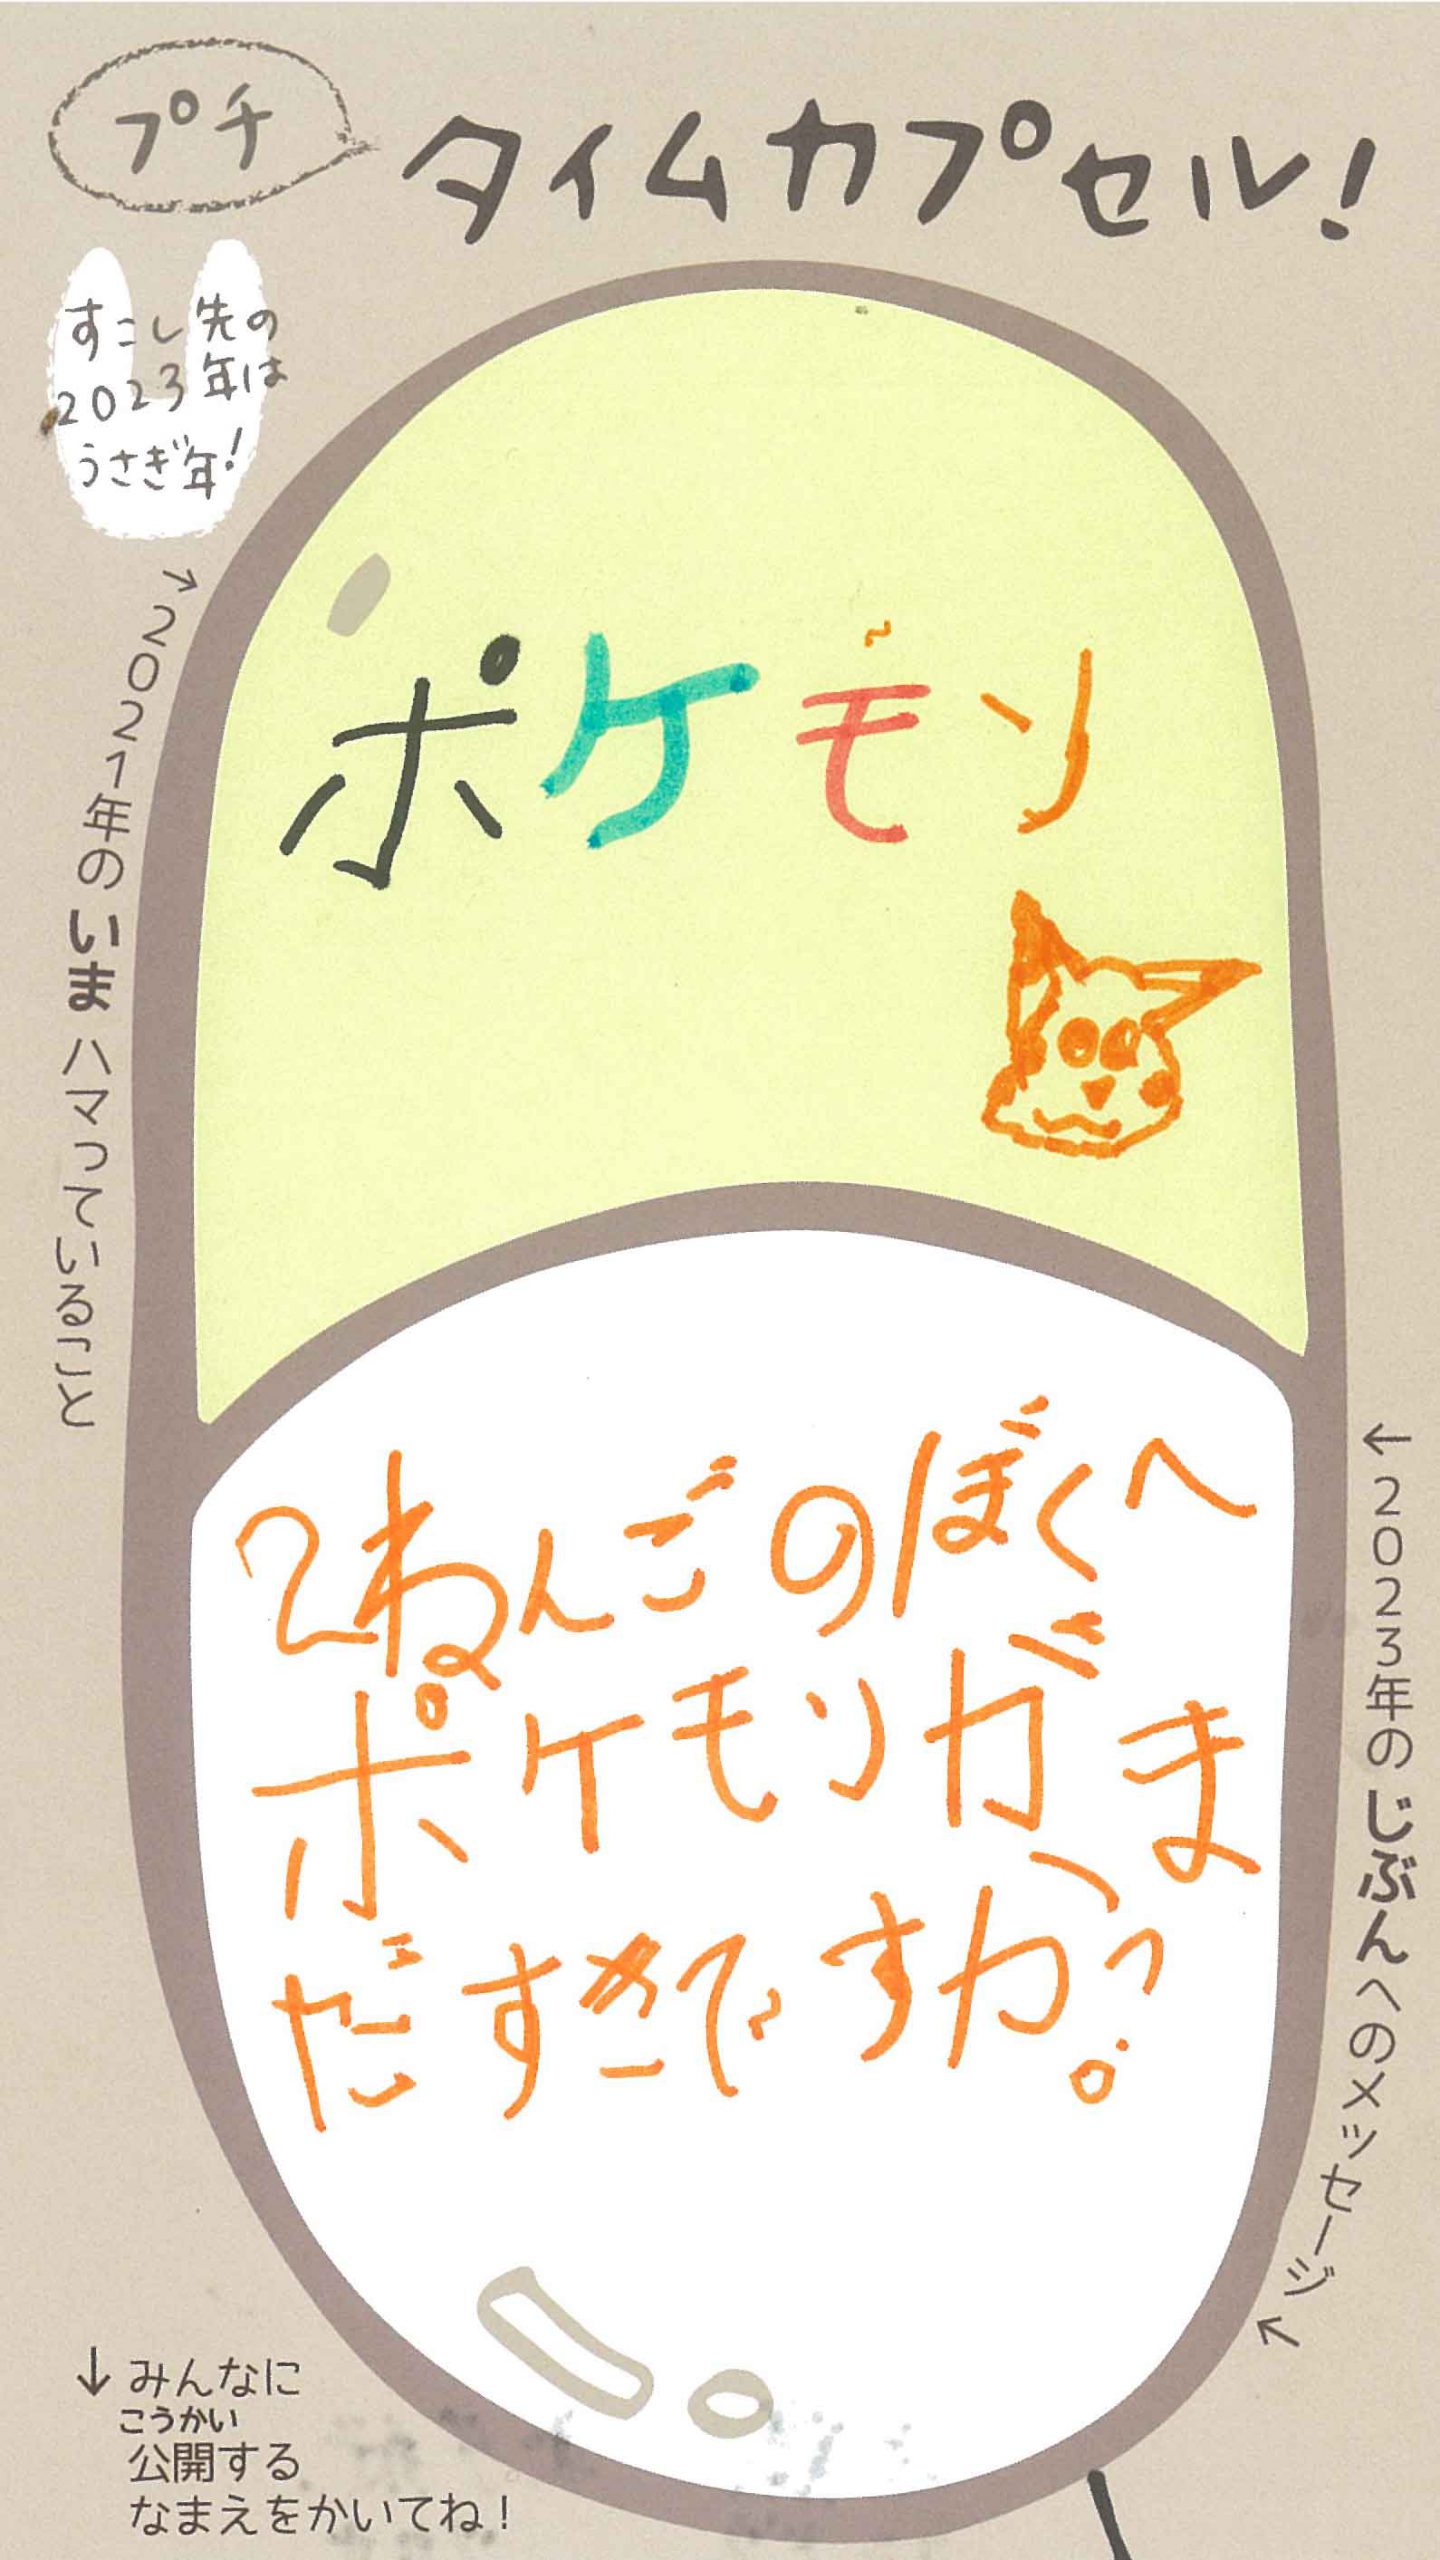 プチ
タイムカプセル！
すこし先の
2023年は
うさぎ年！
→2021年のいまハマっていること
ポケモン
2ねんごのぼくへ
ポケモンがま
だすきですか？
←2023年のじぶんへのメッセージ
↓みんなに
こうかい
公開する
なまえをかいてね！